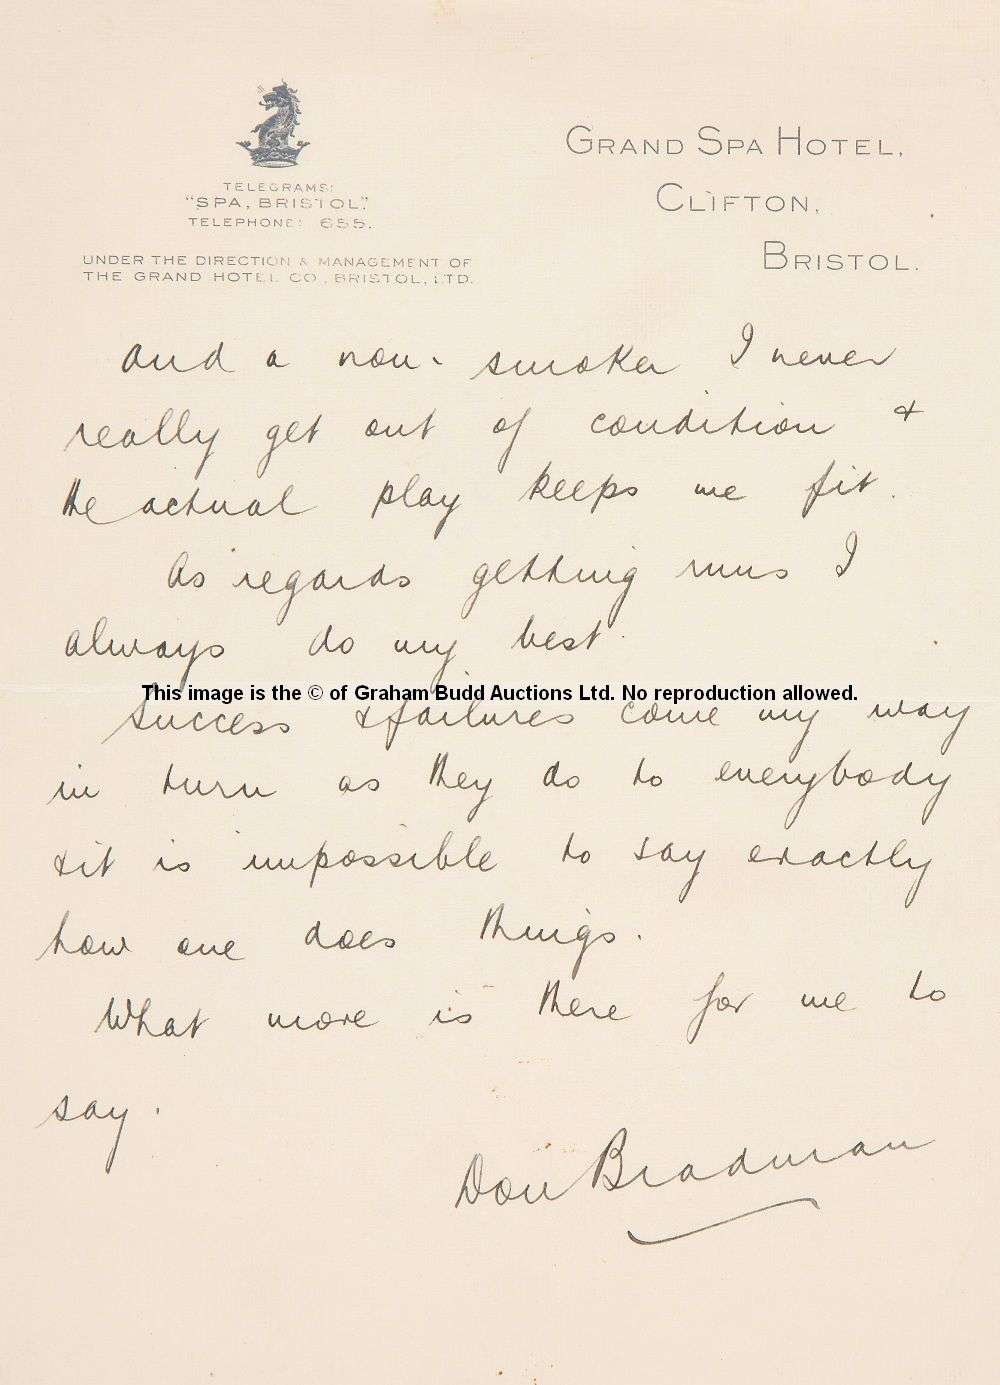 TELEGRAMS:
"SPA, BRISTOL".
TELEPHONE: 655.
UNDER THE DIRECTION & MANAGEMENT OF
THE GRAND HOTEL CO., BRISTOL, LTD.
GRAND SPA HOTEL,
CLIFTON,
BRISTOL.
and a non-smoker I never
really get out of condition &
the actual play keeps me fit.
As regards getting runs I
always do my best.
This image is the © of Graham Budd Auctions Ltd. No reproduction allowed.
Success & failures come my way
in turn as they do to everybody
& it is impossible to say exactly
how one does things.
What more is there for me to
say.
Don Bradman